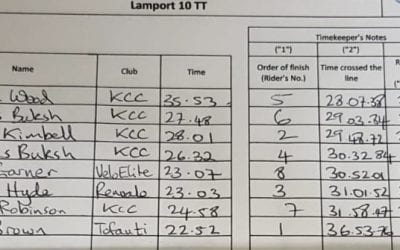 Lamport 10 TT
Timekeeper's Notes
("1") ("2")
Name Club Time Order of finish (Rider's No.) Time crossed the line
Wood KCC 35.53 5 28.07.38
Buksh KCC 27.48 6 29 03.34
Kimbell KCC 28.01 2 29 48.72
s Buksh KCC 26.32 4 30.32.84
Garner VeloElite 23.07 8 30.5201
Hyde Renvalo 23.03 3 31.01.52
Robinson KCC 24.58 7 31.58.47
Brown Tofauti 22.52 1 36.53.76